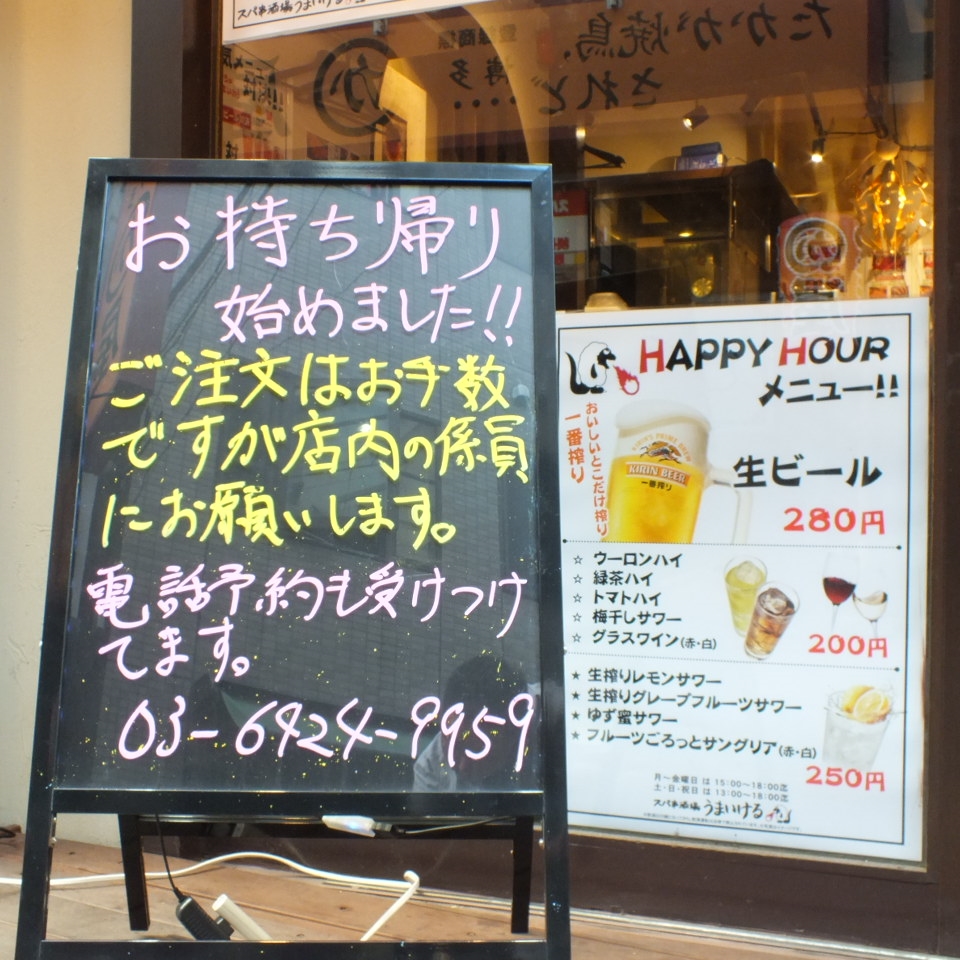 スパ串酒場うまいける
たかが焼鳥、
されど……
博多
登録商標
か
お持ち帰り
始めました!!
ご注文はお手数
ですが店内の係員
にお願いします。
電話予約も受けつけ
てます。
03-6424-9959
HAPPY HOUR
メニュー!!
おいしいとこだけ搾り
一番搾り
KIRIN BEER
一番搾り
生ビール
280円
☆ ウーロンハイ
☆ 緑茶ハイ
☆ トマトハイ
☆ 梅干しサワー
☆ グラスワイン(赤・白)
200円
★ 生搾りレモンサワー
★ 生搾りグレープフルーツサワー
★ ゆず蜜サワー
★ フルーツごろっとサングリア(赤・白)
250円
月〜金曜日 は 15:00〜18:00迄
土・日・祝日 は 13:00〜18:00迄
スパ串酒場 うまいける